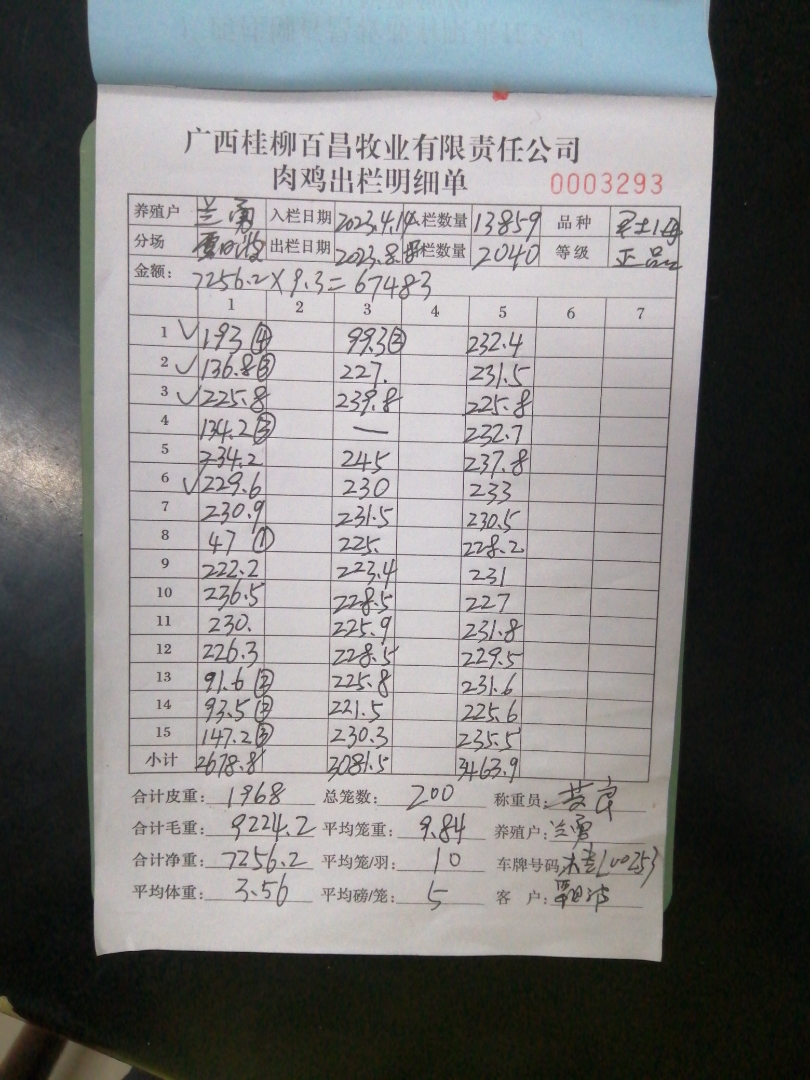 广西桂柳百昌牧业有限责任公司
肉鸡出栏明细单 0003293
养殖户 兰勇 入栏日期 2023.4.14 栏数量 13859 品种
分场 出栏日期 2023.8. 栏数量 2040 等级 正品
金额: 7256.2×9.3=67483
1 2 3 4 5 6 7
1 ✓ 193 ④ 99.3 ② 232.4
2 ✓ 136.8 ③ 227. 231.5
3 ✓ 225.8 239.8 225.8
4 134.2 ③ — 232.7
5 234.2 245 237.8
6 ✓ 229.6 230 233
7 230.9 231.5 230.5
8 47 ① 225. 228.2
9 222.2 223.4 231
10 236.5 228.5 227
11 230. 225.9 231.8
12 226.3 228.5 229.5
13 91.6 ② 225.8 231.6
14 93.5 ② 221.5 225.6
15 147.2 ③ 230.3 235.5
小计 2678.8 3081.5 3463.9
合计皮重: 1968 总笼数: 200 称重员:
合计毛重: 9224.2 平均笼重: 9.84 养殖户: 兰勇
合计净重: 7256.2 平均笼/羽: 10 车牌号码
平均体重: 3.56 平均磅/笼: 5 客户: